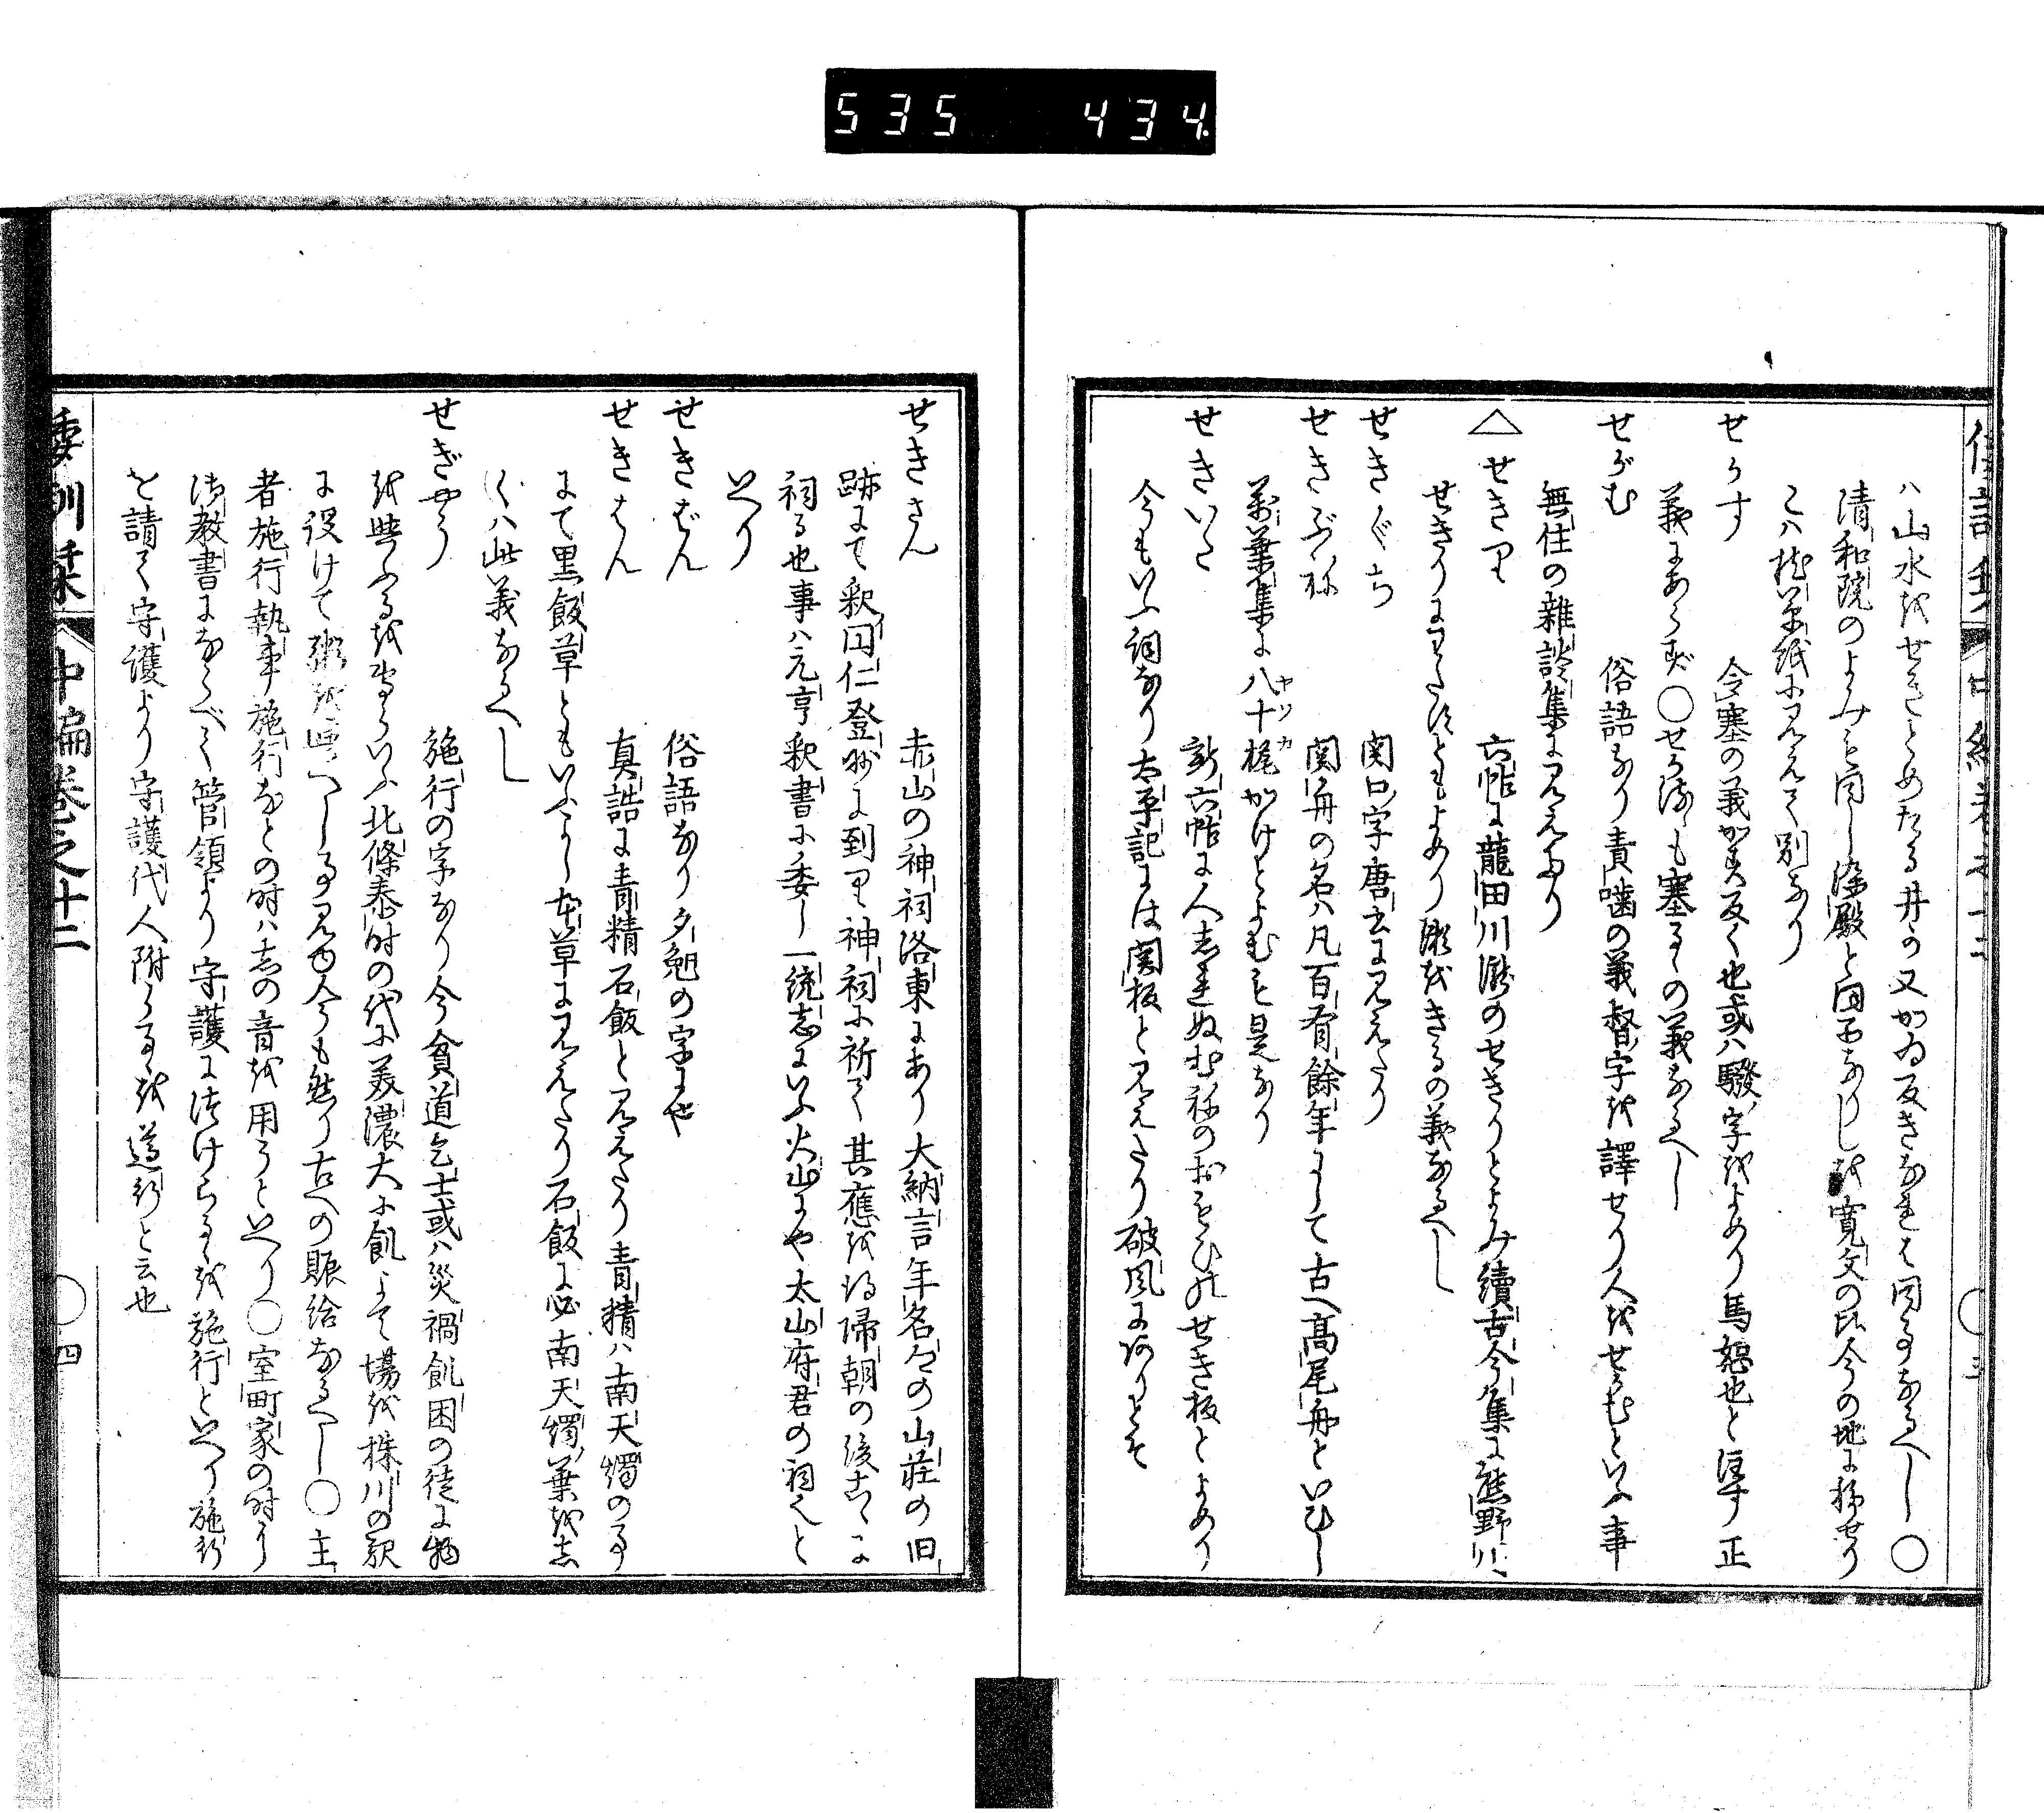 535 434.
ハ山水をせきとめたる井か又かゐ反きなれは同事なるへし〇
清和院のよみも同し染殿と南西なりしを寛文の比今の地に移せり
こハ枕草紙に見えて別なり
せかす 今塞の義かす反く也或ハ騣字をよめり馬怒也と注す正
義にあらず〇せかるも塞るの義なるへし
せがむ 俗語なり責嚙の義督字を譯せり人をせかむといふ事
無住の雜談集に見えたり
△せきり 六帖に龍田川瀧のせきりとよみ續古今集に熊野川
せきりにわたすともよめり瀬をきるの義なるへし
せきぐち 関口字唐書に見えたり
せきぶね 関舟の名ハ凡百有餘年にして古へ高尾舟といひし
萬葉集に八十梶かけとよむも是なり
ヤソカ
せきいた 新六帖に人志れぬむねのおもひのせき板とよめり
今もいふ詞なり太平記には関板と見えたり破風にありとそ
せきさん 赤山の神祠洛東にあり大納言年名々の山荘の旧
跡にて釈円仁登州に到り神祠に祈て其應を得帰朝の後こゝに
祠る也事ハ元亨釈書に委し一統志にいふ火山にや太山府君の祠也と
いへり
せきばん 俗語なり夕勉の字にや
せきはん 真誥に青精石飯と見えたり青精ハ南天燭の事
にて黒飯草ともいふよし本草に見えたり石飯に必南天燭葉を志
くハ此義なるへし
せぎやう 施行の字なり今貧道乞士或ハ災禍飢困の徒に物
を與ふるを専らいふ北條泰時の代に美濃大に飢よて場を株川の駅
に設けて粥を與へし事見ゆ今も然り古への賑給なるへし〇主
者施行執事施行なとの時ハ志の音を用うといへり〇室町家の時より
御教書にならべて管領より守護に佐けらるを施行といへり施行
を請て守護より守護代人附るを遵行と云也
倭訓栞 中編巻之十二 〇四